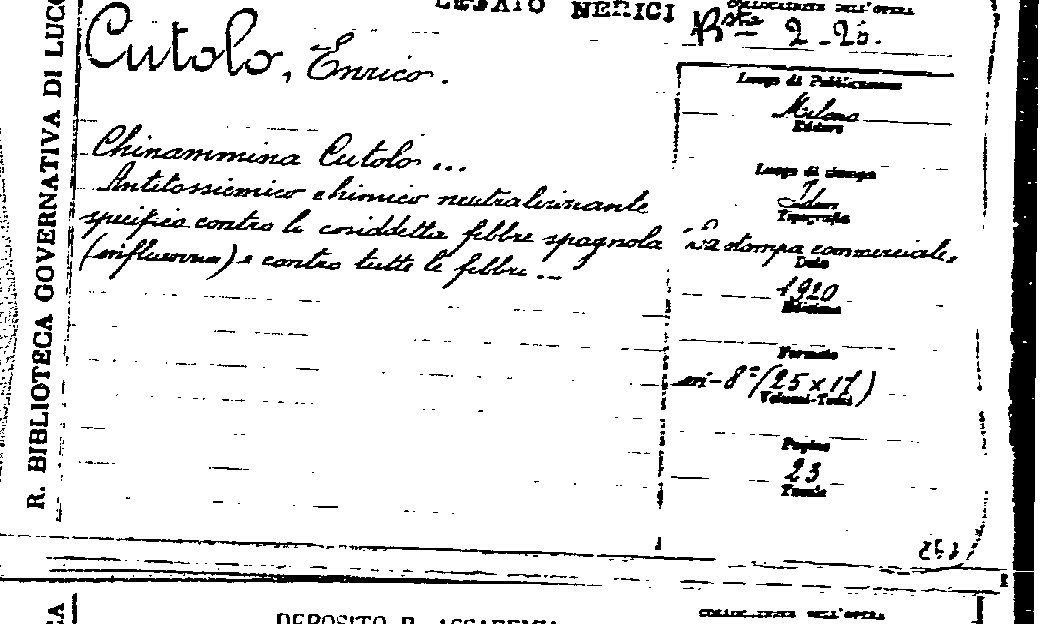 LEGATO NERICI
COLLOCAZIONE DELL'OPERA
Bsta 2-26.
R. BIBLIOTECA GOVERNATIVA DI LUCC
Cutolo, Enrico.
Luogo di Pubblicazione
Milano
Editore
Chinammina Cutolo ...
Antitossiemico chimico neutralizzante
specifico contro le cosiddetta febbre spagnola
(influenza) e contro tutte le febbre ...
Luogo di stampa
Idem
Tipografia
"La stampa commerciale"
Data
1920
Edizione
Formato
in-8° (25 x 17)
Volumi-Tomi
Pagine
23
Tavole
DEPOSITO R. ACCADEMIA
COLLOCAZIONE DELL'OPERA